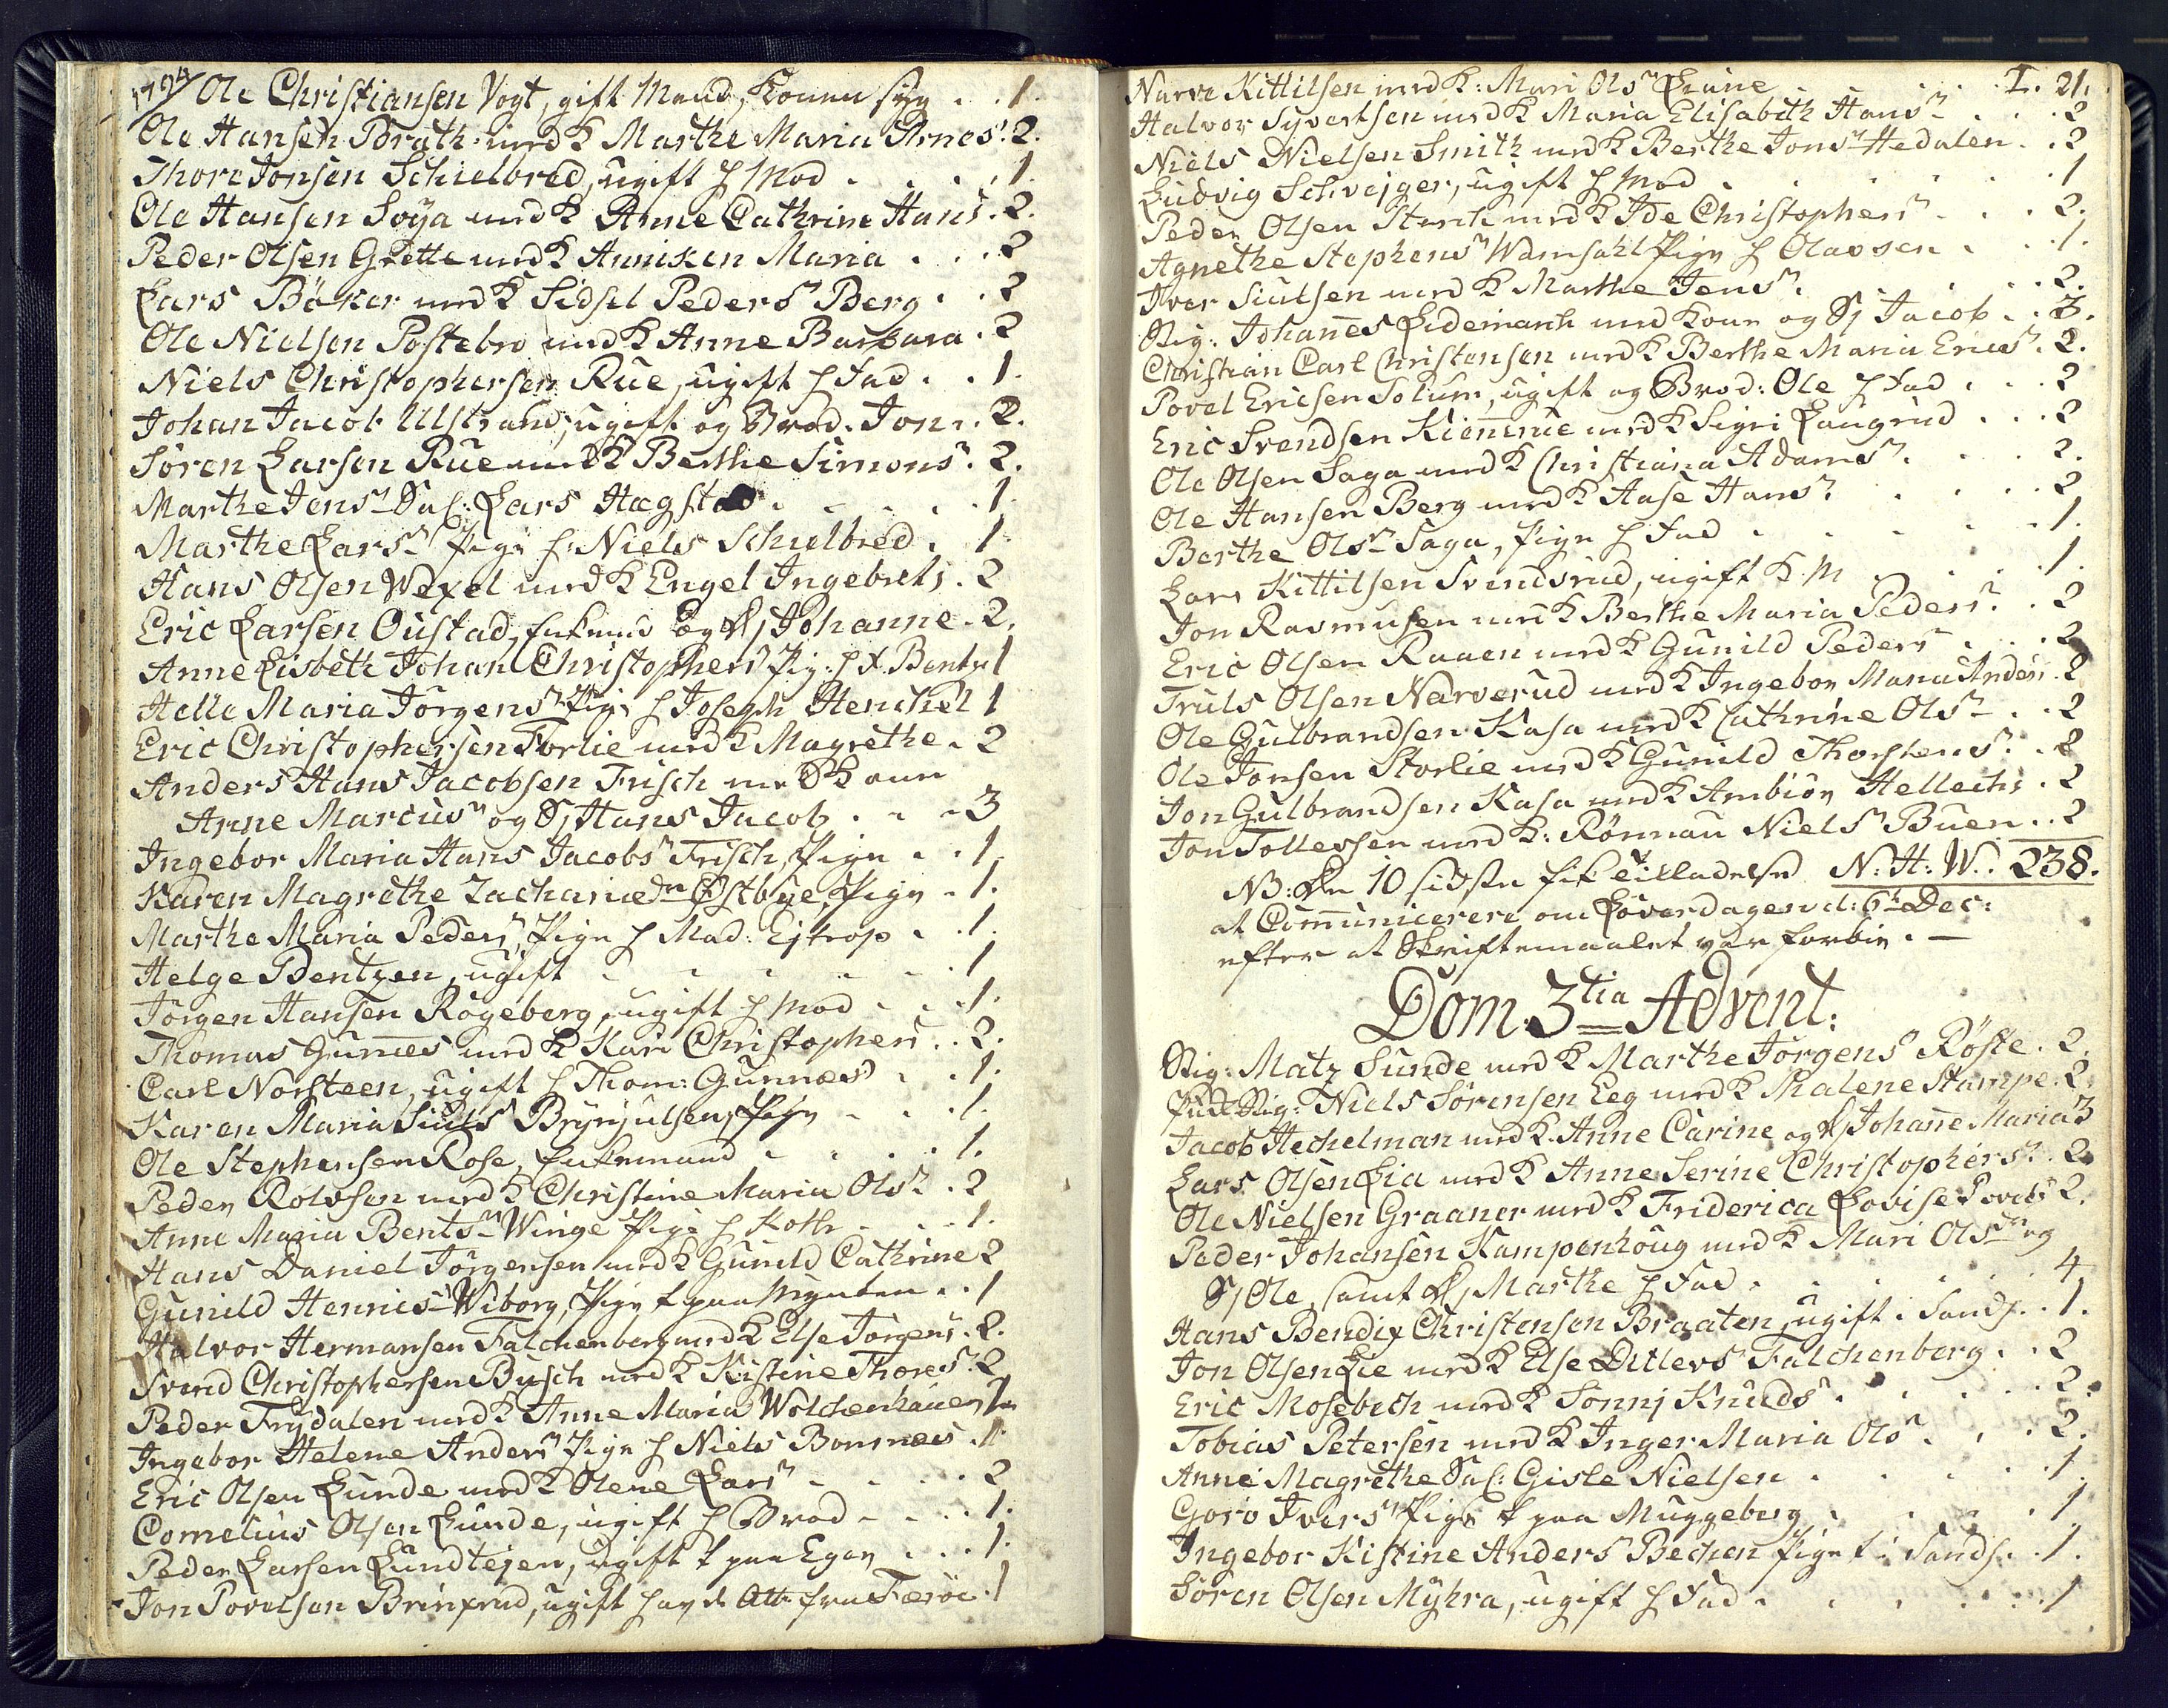 1794
Ole Christiansen Vogt, gift Mand, Konen syg . . 1.
Ole Hansen Brath med K Marthe Maria Arnes. 2.
Thore Jonsen Schielbred, ugift h Mod . . . 1.
Ole Hansen Søya med K Anne Cathrine Hans. 2.
Peder Olsen Grette med K Anniken Maria . . . 2
Lars Bøker med K Sidsel Peders Berg . . 2
Ole Nielsen Postebro med K Anne Barbara . 2
Niels Christophersen Rue, ugift h Fad . . 1.
Johan Jacob Ulstrand, ugift og Brod. Jon . . 2.
Søren Larsen Rue med K Berthe Simons. 2.
Marthe Jens Sal: Lars Hægstad . . . . 1.
Marthe Lars Pige h: Niels Schielbred . 1.
Hans Olsen Wexel med K Engel Ingebrets . 2
Eric Larsen Oustad, Enkemd og D Johanne . 2.
Anne Lisbeth Johan Christophers Pig: h J. Bentz 1
Helle Maria Jørgens Pige h Joseph Henchel 1
Eric Christophersen Torlie med K Magrethe . 2
Anders Hans Jacobsen Frisch med Kone
Anne Marcus og S Hans Jacob . . . 3
Ingebor Maria Hans Jacobs Frisch, Pige . . 1.
Karen Magrethe Zachariæ Østbye, Pige . 1.
Marthe Maria Peders, Pige h Mad: Ejtrop . . 1.
Helge Bentzen, ugift . . . . . 1
Jørgen Hansen Røgeberg, ugift h Mod . . . 1.
Thomas Gunnes med K Kari Christophers . . 2.
Carl Norsteen, ugift h Thom: Gunnæs . . 1.
Karen Maria Siuls Brynjulsen, Pige . . . 1.
Ole Stephensen Rose, Enkemand . . . . 1.
Peder Rolvsen med K Christine Maria Ols . 2
Anne Maria Bents Winge Pige h Koth . . . 1.
Hans Daniel Jørgensen med K Gunild Cathrine 2
Gunild Hennies Wiborg, Pige t paa Mynten . . 1
Halvor Hermansen Falchenberg med K Else Jørgens . 2.
Svend Christophersen Busch med K Kistine Thores. 2
Peder Frydalen med K Anne Maria Wolchenhauer
Ingebor Helene Anders Pige h Niels Bonnæs . 1
Eric Olsen Lunde med K Olene Lars . . . . 2
Cornelius Olsen Lunde, ugift h Brod . . . . 1.
Peder Larsen Lundtejen, ugift t paa Egen . . . 1.
Jon Povelsen Brinxrud, ugift fra Færöe . 1
Narve Kittilsen med K: Mari Ols Luine . . . T. 21.
Halvor Syvertsen med K Maria Elisabeth Hans . . . 2
Niels Nielsen Smith med K Berthe Jons Hedalen . . 2
Ludvig Schvejger, ugift h Mod . . . . . 1
Peder Olsen Sterch med K Ide Christophers . . . 2.
Agnethe Stephens Wamsahl Pige h Olavsen . . . 1.
Iver Siulsen med K Marthe Jens . . . . 2.
Stig: Johannes Lidemarch med Kone og S Jacob . . 3.
Christian Carl Christensen med K Berthe Maria Erics. 2.
Povel Ericsen Solum, ugift og Brod: Ole h Fad . . . 2
Eric Svendsen Kiennerue med K Sigri Laugrud . . . 2
Ole Olsen Saga med K Christiana Adams . . . 2.
Ole Hansen Berg med K Aase Hans . . . . 2
Berthe Ols Saga, Pige h Fad . . . . . 1.
Lars Kittilsen Svendsrud, ugift K. M . . . . 1.
Jon Rasmusen med K Berthe Maria Peders . . 2
Eric Olsen Raaen med K Gunild Peders . . . 2
Truls Olsen Narverud med K Ingebor Maria Anders . 2
Ole Gulbrandsen Kasa med K Cathrine Ols . . 2
Ole Jonsen Storlie med K Gunild Thorstens . . 2
Jon Gulbrandsen Kasa med K Ambiør Hellechs . 2
Jon Tollefsen med K: Rønnau Niels Buen . . 2
NB: De 10 sidste fik Tilladelse N: H: W.: 238.
at Communicere om Løverdagen d: 6te Dec:
efter at Skriftemaalet var forbie. —
Dom. 3tia Advent:
Stig: Matz Sunde med K Marthe Jørgens Røste . 2.
Stig: Niels Sørensen Eeg med K Malene Stampe . 2.
Jacob Hechelman med K. Anne Carine og D Johanne Maria 3
Lars Olsen Lia med K Anne Serine Christophers . 2.
Ole Nielsen Graaner med K Friderica Lovise Povels 2.
Peder Johansen Kampenhoug med K Mari Olsdr og
S Ole, samt D Marthe h Fad . . . . . 4
Hans Bendix Christensen Braaten, ugift i Sandsv. . 1.
Jon Olsen Lie med K Else Ditlevs Falchenberg . . 2
Eric Mosebech med K Sonnj Knuds . . . . 2.
Tobias Petersen med K Inger Maria Ols . . . 2.
Anne Magrethe Sal: Gisle Nielsen . . . . 1
Gorø Ivers Pige t paa Muggeberg . . . . 1.
Ingebor Kistine Anders Bechen Pige t i Sands. . 1.
Søren Olsen Myhra, ugift h Fad . . . . . 1